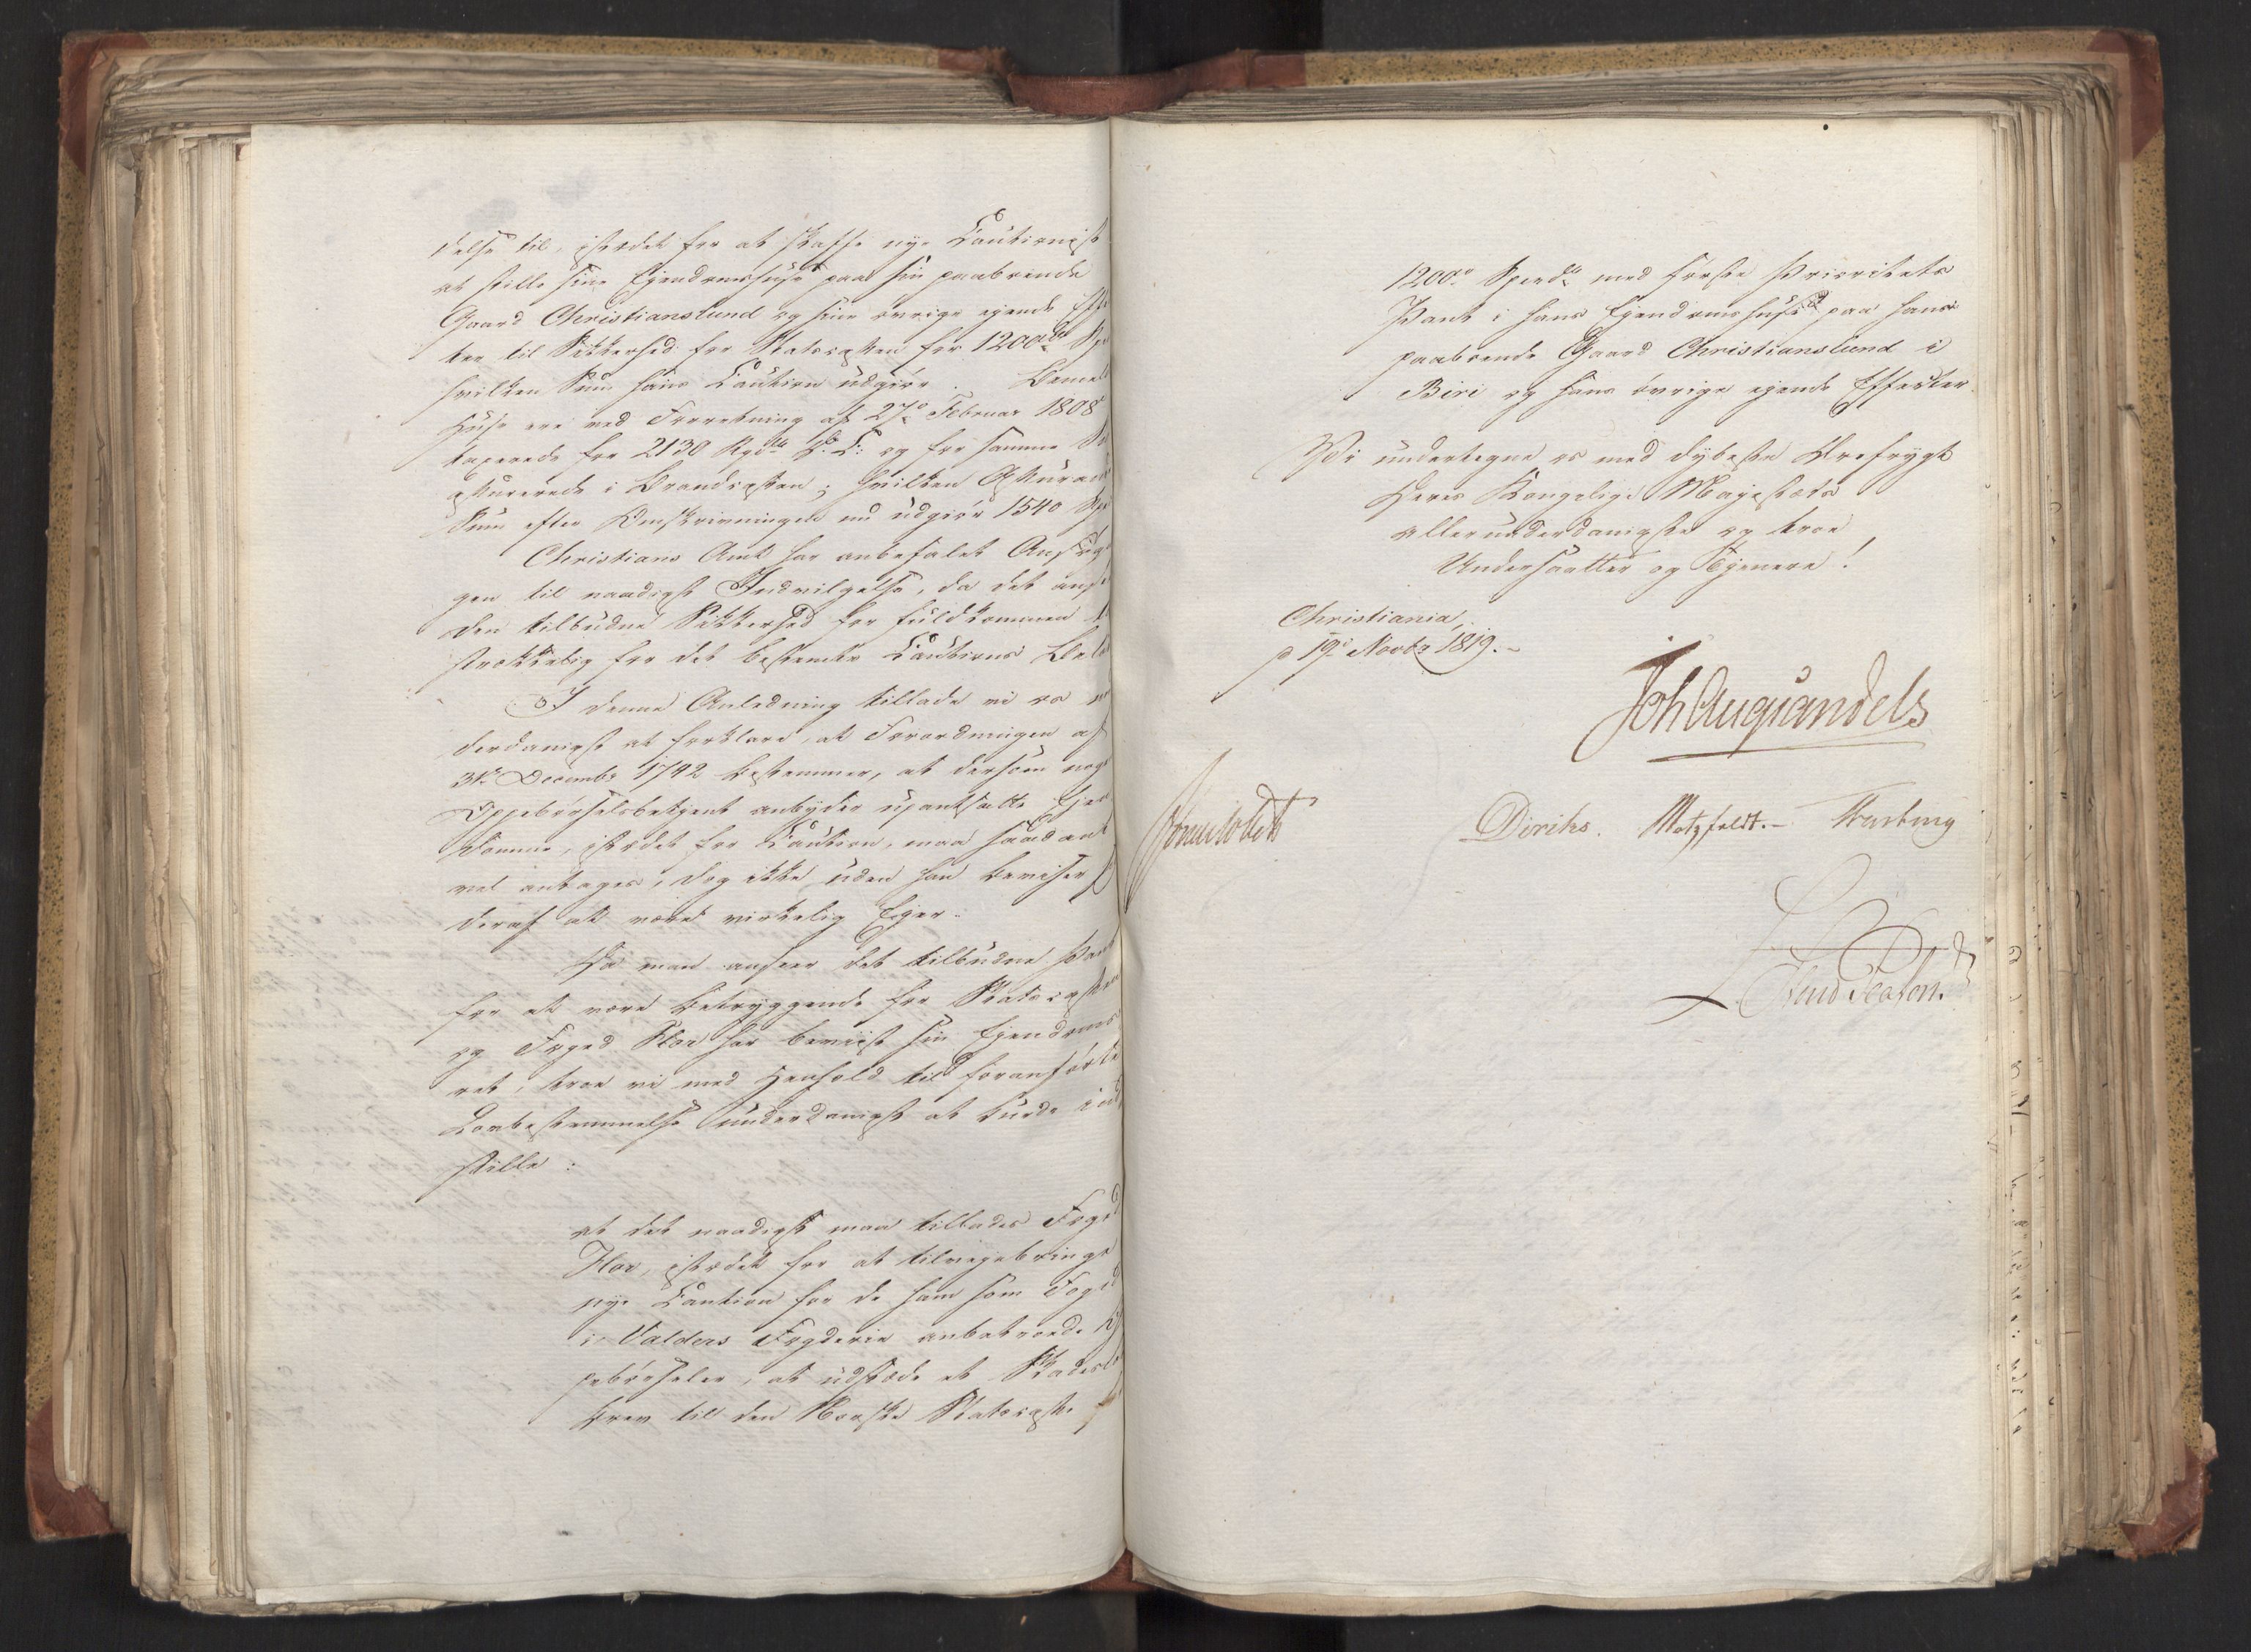 delse til, istædet for at skaffe nye Cautionist
at stille sine Ejendomshuse paa sin paaboende
Gaard Christianslund og sine øvrige ejende Effe
ter til Sikkerhed for Statscassen for 1200 Sp
hvilken Sum hans Caution udgiør. Bemel
Huse ere ved Forretning af 27de Februar 1808
taxerede for 2130 Rgdlr D: C: og for samme
assurerede i Brandcassen; hvilken Assurance
Sum efter Omskrivningen nu udgiør 1540 Spe
Christians Amt har anbefalet Ansøg
gen til naadigst Indvilgelse, da det anse
den tilbudne Sikkerhed for fuldkommen
strækkelig for det bestemte Cautions Belø
I denne Anledning tillade vi os un
derdanigst at forklare, at Forordningen af
31te Decembr 1792 bestemmer, at dersom noge
Oppebørselsbetjent anbyder upantsatte Ejen
domme, istædet for Caution, maa saadant
vel antages, dog ikke uden han beviser
deraf at være virkelig Ejer.
Da man anseer det tilbudne Pant
for at være betryggende for Statscassen
og Foged Flor har beviist sin Ejendoms
ret, troe vi med Henhold til foranførte
Lovbestemmelse underdanigst at burde ind
stille:
at det naadigst maa tillades Foged
Flor, istædet for at tilvejebringe
nye Caution for de ham som Foged
i Valders Fogderie anbetroede Op
pebørseler, at udstæde et Skades
brev til den Norske Statscasse
1200 Specd med første Prioritets
Pant i hans Ejendomshuse paa hans
paaboende Gaard Christianslund i
Biri og hans øvrige ejende Effecter.
Vi undertegne os med dybeste Ærefrygt
Deres Kongelige Majestæts
allerunderdanigste og troe
Undersaatter og Tjenere!
Christiania,
d 19de Novbr 1819.
Joh Aug Sandels
Sommerhielm
Diriks. Motzfeldt. Fasting